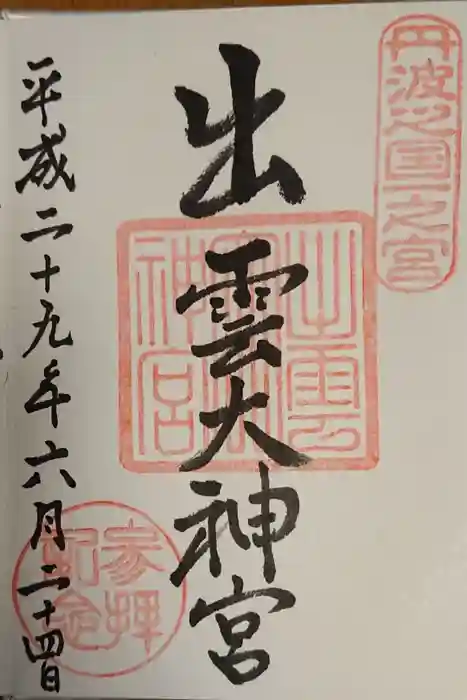 丹波之国一之宮
出雲大神宮
出雲大神宮
平成二十九年六月二十四日
参拝記念